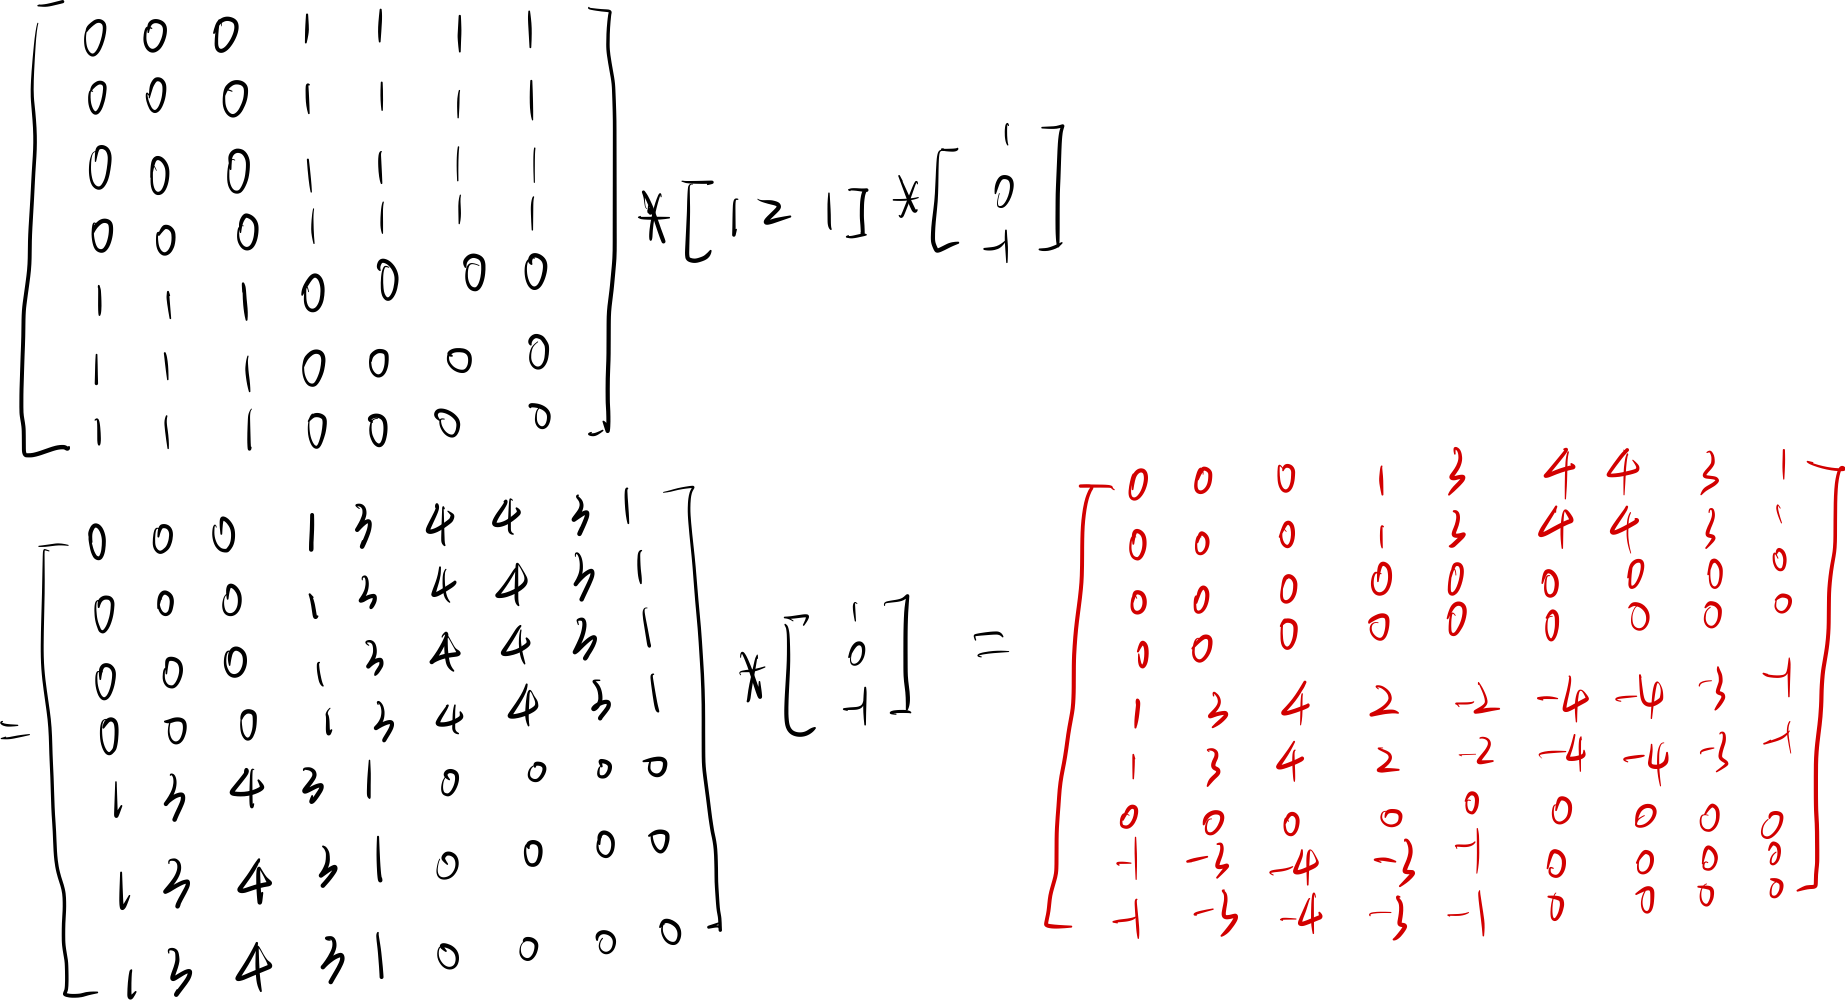 0 0 0 1 1 1 1
0 0 0 1 1 1 1
0 0 0 1 1 1 1
0 0 0 1 1 1 1
1 1 1 0 0 0 0
1 1 1 0 0 0 0
1 1 1 0 0 0 0
* [1 2 1] * [
1
0
-1
]
= [
0 0 0 1 3 4 4 3 1
0 0 0 1 3 4 4 3 1
0 0 0 1 3 4 4 3 1
0 0 0 1 3 4 4 3 1
1 3 4 3 1 0 0 0 0
1 3 4 3 1 0 0 0 0
1 3 4 3 1 0 0 0 0
] * [
1
0
-1
] = [
0 0 0 1 3 4 4 3 1
0 0 0 1 3 4 4 3 1
0 0 0 0 0 0 0 0 0
0 0 0 0 0 0 0 0 0
1 3 4 2 -2 -4 -4 -3 -1
1 3 4 2 -2 -4 -4 -3 -1
0 0 0 0 0 0 0 0 0
-1 -3 -4 -3 -1 0 0 0 0
-1 -3 -4 -3 -1 0 0 0 0
]